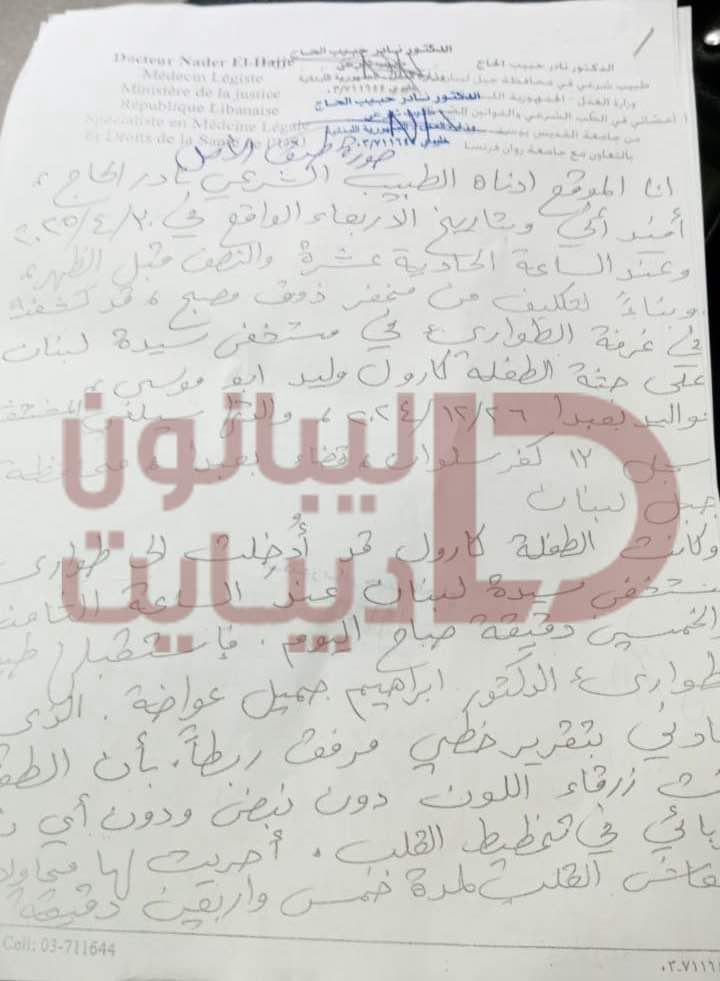 Docteur Nader El-Hajje
Médecin Légiste
Ministère de la justice
République Libanaise
Spécialiste en Médecine Légale
Et Droits de la Santé
الدكتور نادر حبيب الحاج
الدكتور نادر حبيب الحاج
طبيب شرعي في محافظة جبل لبنان
وزارة العدل - الجمهورية
الدكتور نادر حبيب الحاج
أخصائي في الطب الشرعي والقوانين
من جامعة القديس يوسف
بالتعاون مع جامعة روان فرنسا
صورة طبق الأصل
انا الموقع ادناه الطبيب الشرعي نادر الحاج،
أفيد أني وبتاريخ الاربعاء الواقع في ٢٠٢٥/٤/٣٠
وعند الساعة الحادية عشرة والنصف قبل الظهر،
وبناءً لتكليف من مخفر ذوق مصبح، قد كشفت
في غرفة الطوارئ في مستشفى سيدة لبنان
على جثة الطفلة كارول وليد ابو موسى،
مواليد بعبدا ٢٠٢٤/١٢/٢٦، والتي
سجل ١٢ كفر سلوان، قضاء بعبدا، محافظة
جبل لبنان
وكانت الطفلة كارول قد أُدخلت الى طوارئ
مستشفى سيدة لبنان عند الساعة الثامنة
والخمسين دقيقة صباح اليوم. فاستقبلها طبيب
طوارئ الدكتور ابراهيم جميل عواضة. الذي
بتقرير خطي مرفق ربطاً، بأن الطفلة
زرقاء اللون دون نبض ودون أي
في تخطيط القلب. أجريت لها
القلب لمدة خمس واربعين دقيقة
Cell: 03-711644
ليبانون
ديبايت